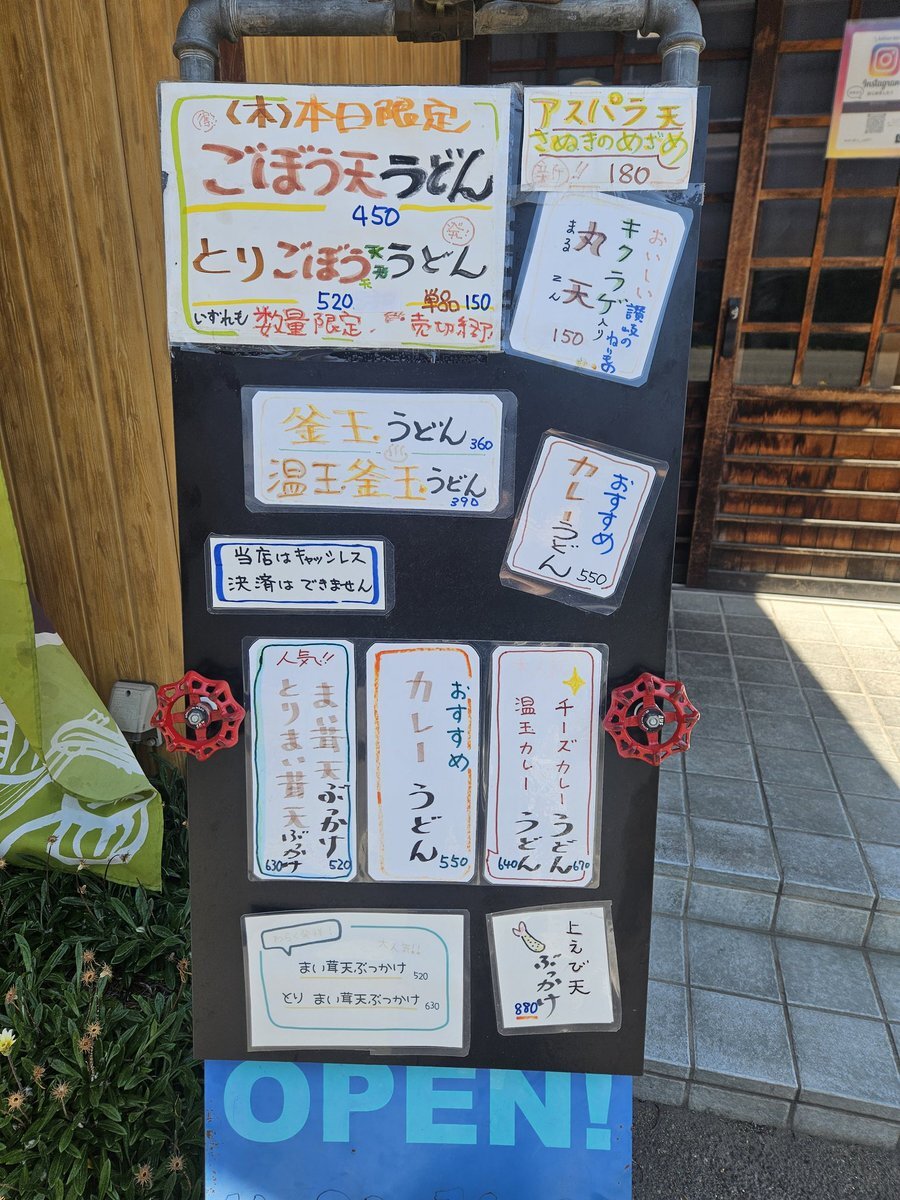 (木)本日限定
ごぼう天うどん
450
とりごぼう天うどん
520
単品150
いずれも 数量限定 売切御
アスパラ天
さぬきのめざめ
180
おいしい讃岐のねりもの
キクラゲ入り
丸天
まる てん
150
釜玉うどん 360
温玉釜玉うどん 390
おすすめ
カレーうどん 550
当店はキャッシレス
決済はできません
人気!!
まい茸天ぶっかけ 520
とりまい茸天ぶっかけ 630
おすすめ
カレーうどん
550
チーズカレーうどん 670
温玉カレーうどん 640
大人気!!
まい茸天ぶっかけ 520
とり まい茸天ぶっかけ 630
上えび天
ぶっかけ
880
OPEN!
Instagram